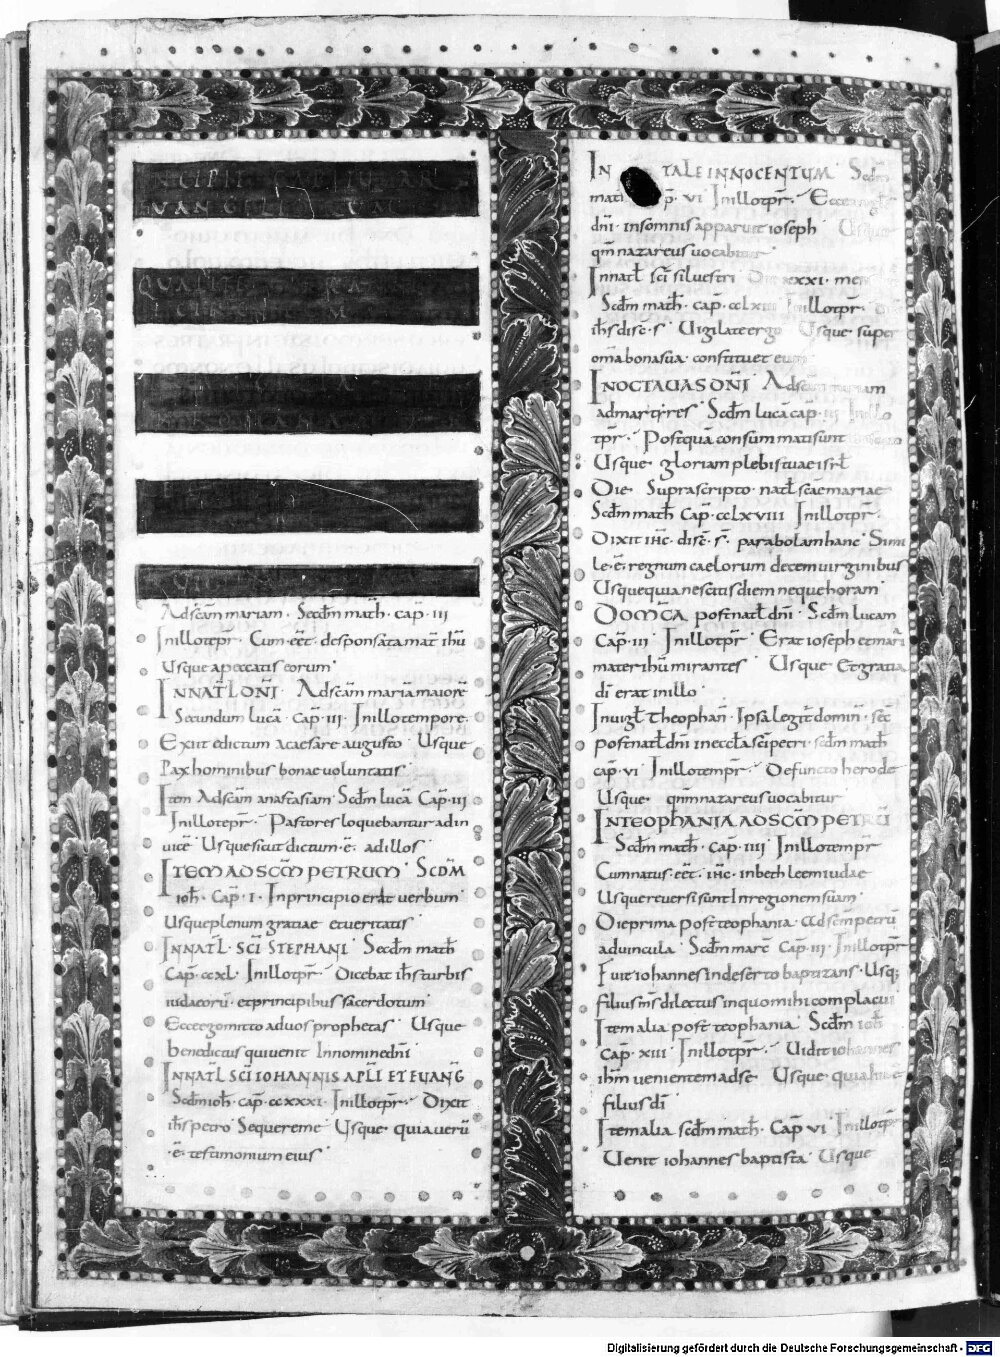 INCIPIT CAPITULAR
EVANGELI
QUALI
Adscam mariam · Secdm math · cap · iii
Inillotpr · Cum · eet · desponsata mat ihu
Usque apeccatis eorum
INNATL DNI · Adscam maria maiore
Secundum luca · Cap · iii · Inillotempore ·
Exiit edictum acaesare augusto · Usque
Pax hominibus bonae voluntatis
Item Adscam anastasiam · Secdm luca Cap · iii
Inillotepr · Pastores loquebantur ad in
vice · Usque sicut dictum · e · ad illos
ITEM AD SCM PETRUM · SCDM
ioh · Cap · i · In principio erat verbum
Usque plenum gratiae et veritatis
INNATL · SCI STEPHANI · Secdm math
Cap · ccxl · Inillotpr · Dicebat ihs turbis
iudaeoru · et principibus sacerdotum
Ecce ego mitto ad vos prophetas · Usque
benedictus qui venit In nomine dni
INNATL SCI IOHANNIS APLI ET EUANG
Secdm ioh · cap · ccxxxi · Inillotpr · Dixit
ihs petro Sequere me · Usque · quia veru
· e · testimonium eius
IN TALE INNOCENTUM
math p · vi Inillotpr · Ecce angl
dni · in somnis apparuit ioseph Usque
qm nazareus vocabitur
Innatl sci silvestri Die xxxi · men
Scdm math · cap · cclxiii Inillotpr ·
ihs dis e · s · Vigilate ergo Usque · super
omia bona sua constituet eum
IN OCTAVAS DNI Ad scam mariam
ad martires Scdm luca cap · iii Inillo
tpr · Postqua consummati sunt
Usque · gloriam plebis tuae isrl
Die Suprascripto · natl scae mariae
Scdm math Cap · cclxviii Inillotpr ·
Dixit ihc · dis e · s · parabolam hanc Simi
le · e · regnum caelorum decem virginibus
Usque quia nescitis diem neque horam
DOMCA post natl dni · Scdm lucam
Cap · iii · Inillotpr · Erat ioseph et mari
mater ihu mirantes Usque · Et gratia
di erat in illo
In vigl theophan · Ipsa legit domin · sec
post natl dni in eccla sci petri · scdm math
cap · vi Inillotempr · Defuncto herode
Usque · qnm nazareus vocabitur
IN TEOPHANIA AD SCM PETRU
Scdm math · cap · iiii Inillotempr
Cum natus · eet · ihc · in bethleem iudae
Usque reversi sunt In regionem suam
Die prima post teophania · ad scm petru
ad vincula · Scdm marc Cap · iii · Inillotpr
Fuit iohannes In deserto baptizans · Usq;
filius ms dilectus in quo mihi complacui
Item alia post teophania Scdm ioh
Cap · xiii Inillotpr · Vidit iohannes
ihm venientem ad se Usque · quia hic e
filius di
Item alia scdm math · Cap vi Inillotpr
Venit iohannes baptista Usque
Digitalisierung gefördert durch die Deutsche Forschungsgemeinschaft - DFG